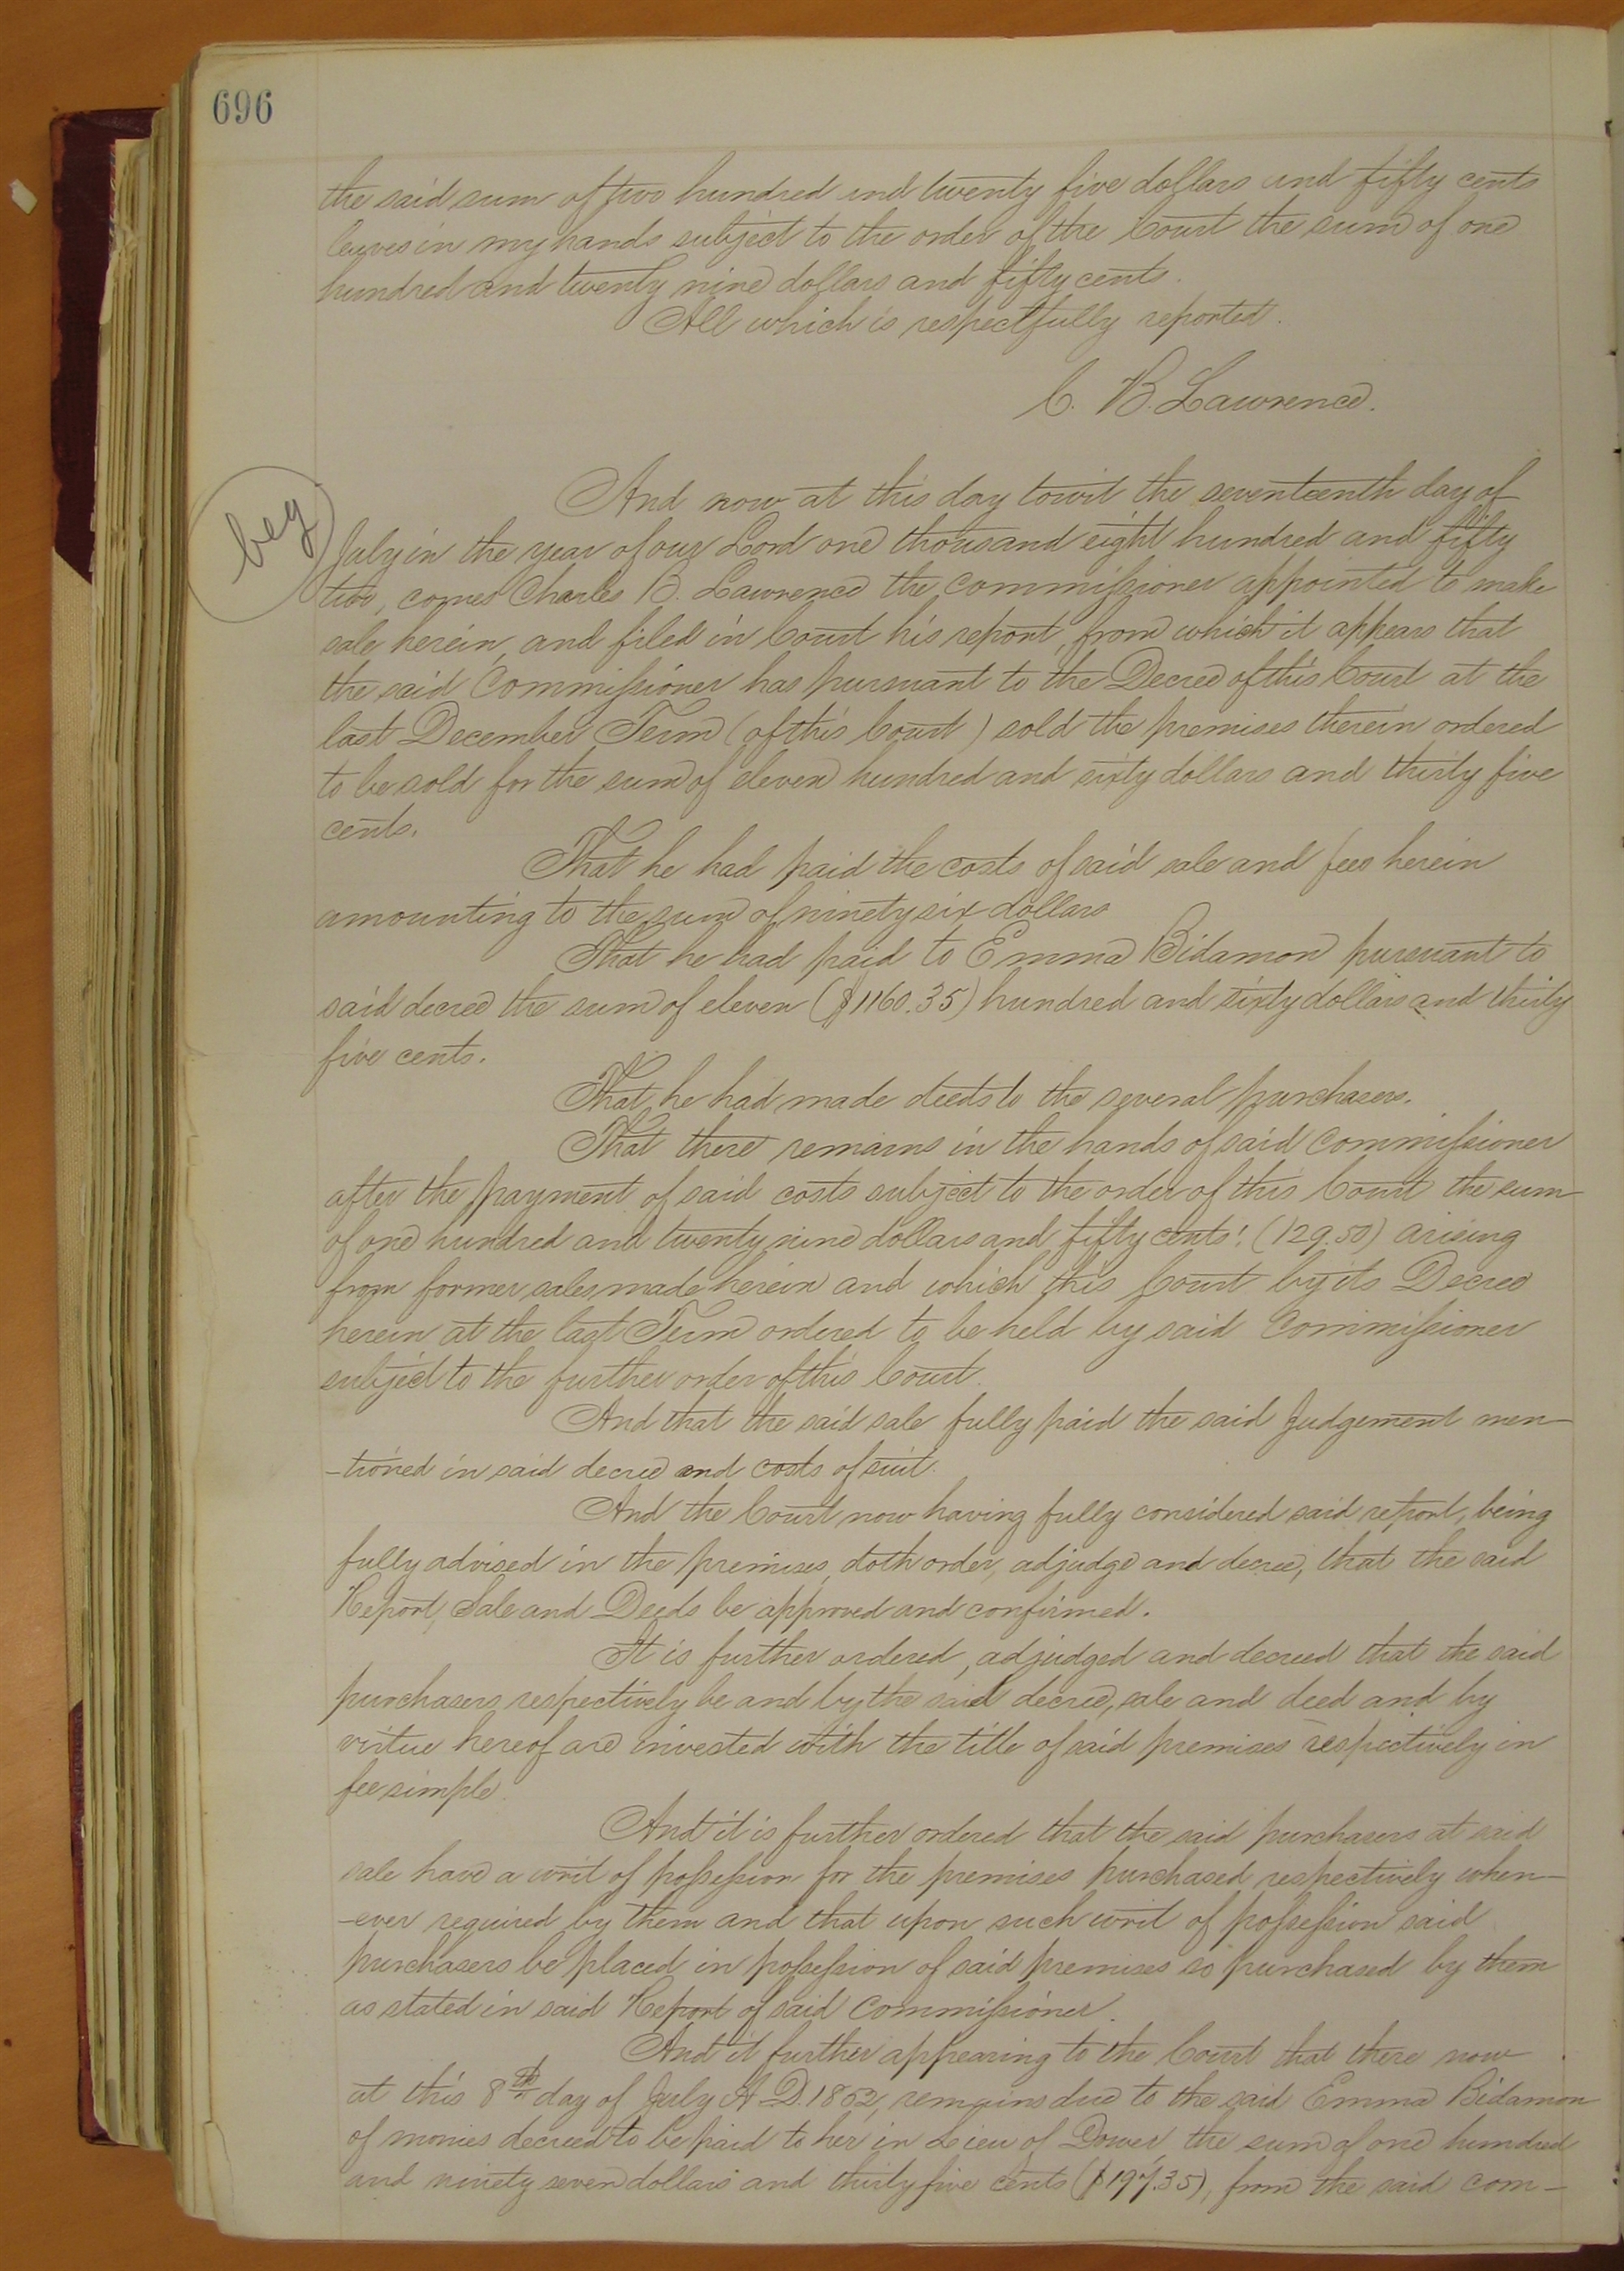 696
the said sum of two hundred and twenty five dollars and fifty cents
leaves in my hands subject to the order of the Court the sum of one
hundred and twenty nine dollars and fifty cents.
All which is respectfully reported.
C. B. Lawrence.
beg
And now at this day towit the seventeenth day of
July in the year of our Lord one thousand eight hundred and fifty
two, comes Charles B. Lawrence the Commissioner appointed to make
sale herein, and filed in Court his report, from which it appears that
the said Commissioner has pursuant to the Decree of this Court at the
last December Term (of this Court) sold the premises therein ordered
to be sold for the sum of eleven hundred and sixty dollars and thirty five
cents.
That he had paid the costs of said sale and fees herein
amounting to the sum of ninety six dollars
That he had paid to Emma Bidamon pursuant to
said decree the sum of eleven ($1160.35) hundred and sixty dollars and thirty
five cents.
That he had made deeds to the several purchasers.
That there remains in the hands of said Commissioner
after the payment of said costs subject to the order of this Court the sum
of one hundred and twenty nine dollars and fifty cents: (129.50) arising
from former sales made herein and which this Court by its Decree
herein at the last Term ordered to be held by said Commissioner
subject to the further order of this Court.
And that the said sale fully paid the said Judgement men-
-tioned in said decree and costs of suit.
And the Court now having fully considered said report, being
fully advised in the premises, doth order, adjudge and decree, that the said
Report, Sale and Deeds be approved and confirmed.
It is further ordered, adjudged and decreed that the said
purchasers respectively be and by the said decree, sale and deed and by
virtue hereof are invested with the title of said premises respectively in
fee simple.
And it is further ordered that the said purchasers at said
sale have a writ of possession for the premises purchased respectively when-
-ever required by them and that upon such writ of possession said
purchasers be placed in possession of said premises so purchased by them
as stated in said Report of said Commissioner.
And it further appearing to the Court that there now
at this 8th day of July A D. 1852, remains due to the said Emma Bidamon
of monies decreed to be paid to her in Lieu of Dower, the sum of one hundred
and ninety seven dollars and thirty five cents ($197.35), from the said com-